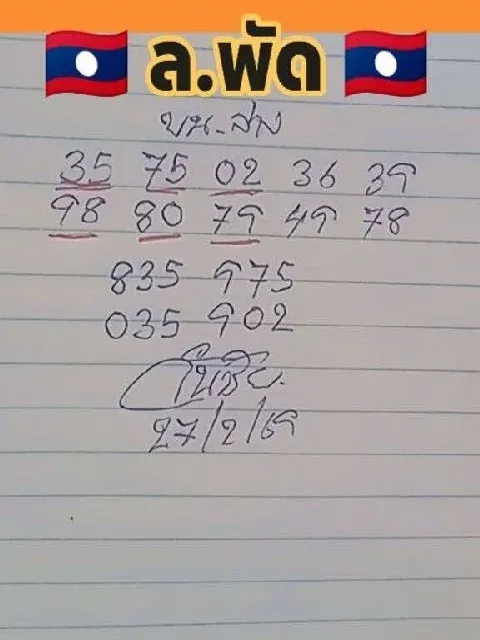 ล.พัด
บน-ล่าง
35 75 02 36 39
98 80 79 49 78
835 975
035 902
27/2/69